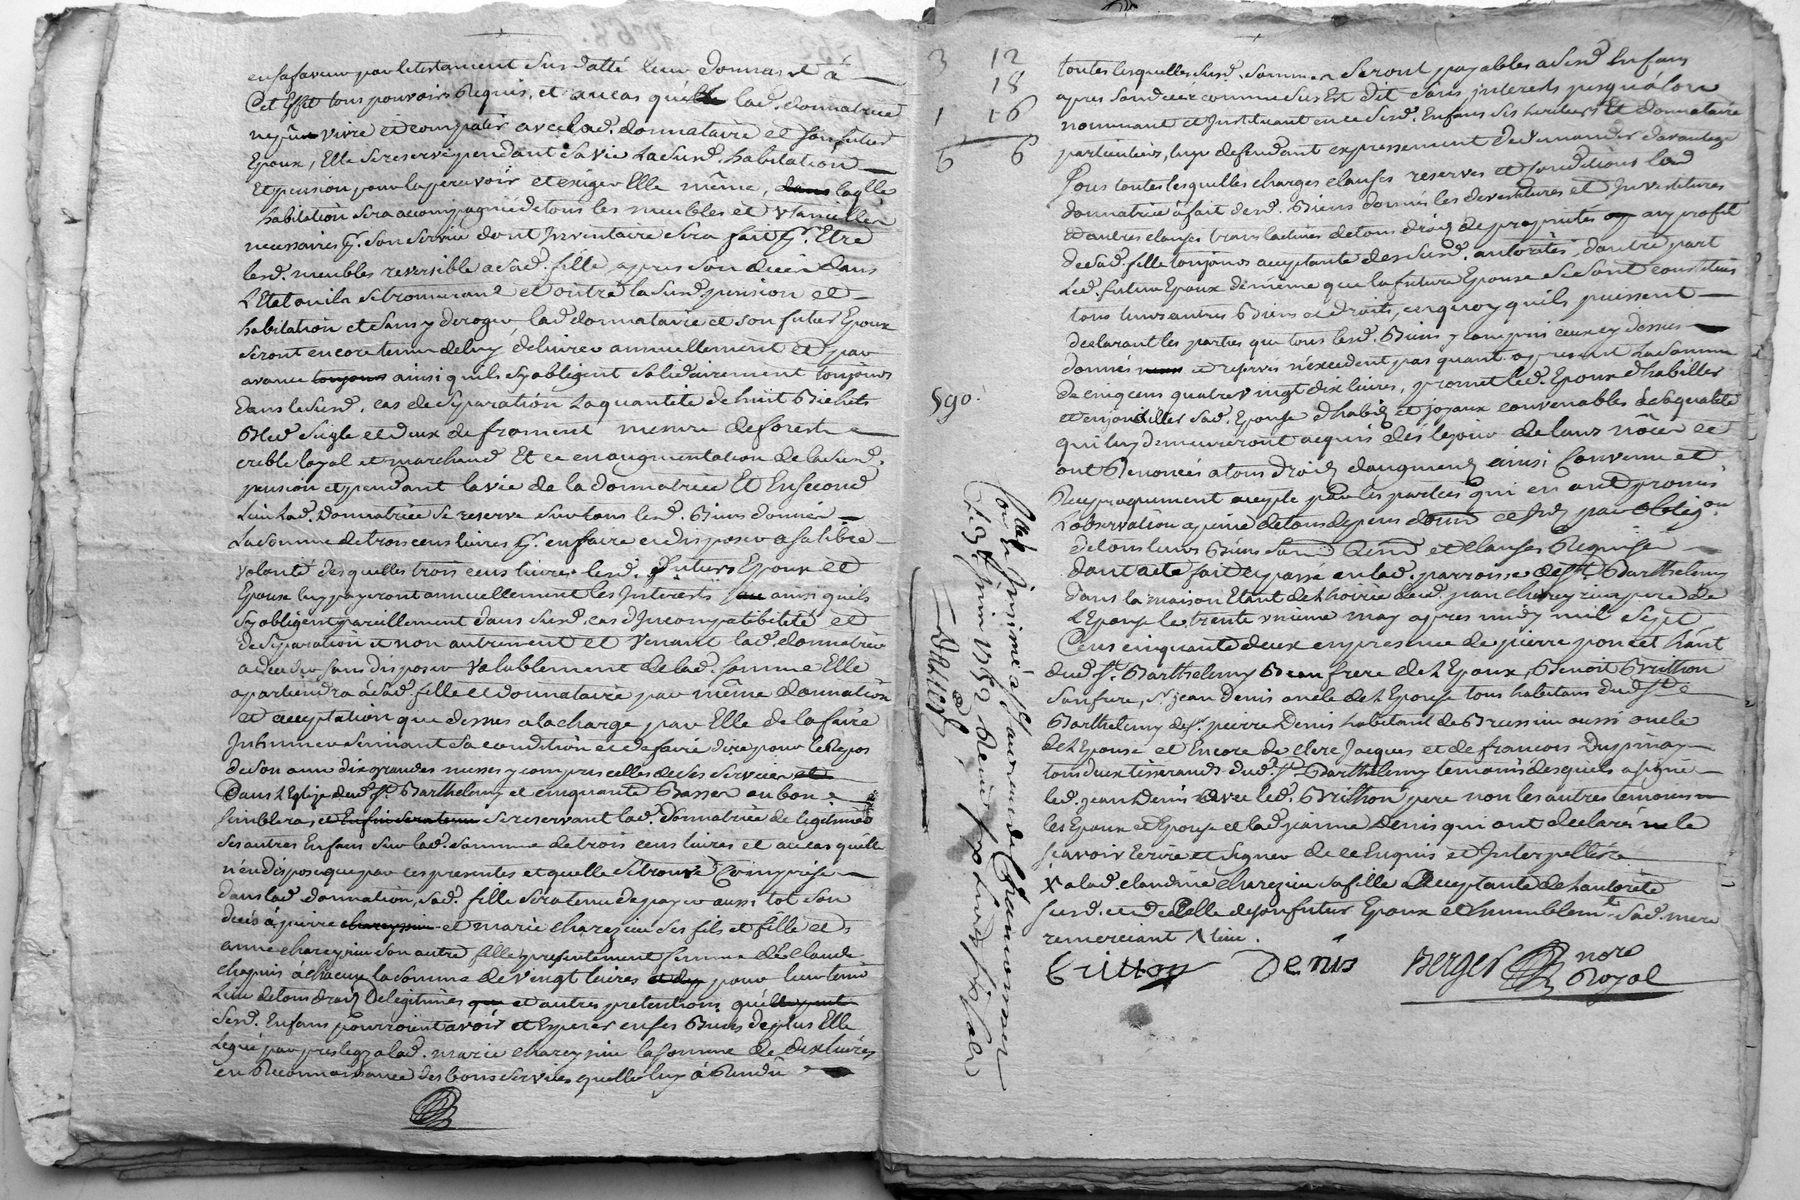 en sa faveur par le testament Susdatté leur donnant à
Cet Effet tous pouvoirs Requis, et au cas qu'elle lad. donnatrice
ne pût vivre et compatir avec lad. donnataire et son futur
Epoux, Elle se reserve pendant sa vie la susd. habitation
Et pension pour la percevoir et exiger Elle même, dans laqlle
habitation sera accompagnée de tous les meubles et Vtancilles
necessaires pr. son service dont Inventaire sera fait pr. Etre
lesd. meubles reversible a sad. fille apres son decès dans
L'Etat ou ils se trouveront et outre la susd. pension et
habitation et sans y deroger, lad. donnataire et son futur Epoux
seront encore tenus de luy delivrer annuellement et par
avance toujours ainsi quils sy obligent solidairement toujours
dans le susd. cas de separation la quantité de huit Bichets
Bled seigle et deux de froment mesure de forest
crible loyal et marchand Et ce en augmentation de la susd.
pension et pendant la vie de la donnatrice Et En second
Lieu Lad. donnatrice se reserve sur tous lesd. Biens donnés
La somme de trois cens livres pr. en faire et disposer a sa libre
volonté desquelles trois cens livres lesd. futurs Epoux et
Epouse luy payeront annuellement les Interests ainsi quils
sy obligent pareillement dans susd. cas d'Incompatibilité et
de separation et non autrement et Venant lad. donnatrice
a deceder sans disposer Valablement de lad. somme Elle
apartiendra à sad. fille et donnataire par même donnation
et acceptation que dessus a la charge par Elle de la faire
Inhumer suivant sa condition et de faire dire pour le Repos
de son ame dix grandes messes y compris celles de ses services et
Dans L'Eglise dud. st. Barthelemy et cinquante Basses ou bon
semblera, et Enfin sera tenue se reservant lad. donnatrice de legitimer
ses autres Enfans sur lad. somme de trois cens livres et au cas quelle
n'en dispose que par ces presentes et quelle se trouve Comprise
dans lad. donnation, sad. fille sera tenue de payer aussi tot son
decès à pierre chareysieu et marie chareysieu ses fils et fille et
anne chareysieu son autre fille presentement femme de Claude
chapuis à chacun la somme de vingt livres et dix pour leur tenir
Lieu de tous droits de legitimes que et autres pretentions quelles peut
sesd. Enfans pourroient avoir et Esperer en ses Biens de plus Elle
Legue par preslegz a lad. marie chareysieu la somme de dix livres
en Reconnoissance des bons services quelle luy à Rendu
3 12
18
1 16
6 6
toutes lesquelles susd. sommes seront payables a sesd. Enfans
apres son deces comme sus Est dit sans interests jusqu'à lors
nommant et Instituant en ce sesd. Enfans ses heritiers Et donnataire
particuliers, leur defendant expressement de demander davantage
Sous toutes lesquelles charges clauses reserves et conditions lad
donnatrice à fait desd. Biens donnés les devestitures et Investitures
et autres clauses translatives de tous droits de proprietés au profit
de sad. fille toujours acceptante des susd. autorités, d'autre part
Led. futur Epoux de même que la future Epouse se sont constitués
tous leurs autres Biens et droits, en quoy quils puissent
declarant les parties que tous lesd. Biens y compris ceux cy dessus
donnés et reservés n'excedent pas quant a present La somme
590.
de cinq cens quatre vingt dix livres, promet led. Epoux d'habiller
et enjouailler sad. Epouse d'habits et joyaux convenables de sa qualité
qui luy demeureront acquis dés le jour de leurs nôces et
ont Renoncés a tous droits d'augment ainsi Convenu et
Reciproquement accepté par les parties qui en ont promis
L'observation a peine de tous depens et par obligon
de tous leurs Biens et clauses Requises
dont acte fait et passé en lad. parroisse de st. Barthelemy
dans la maison Etant de L'hoirie dud. jean chareysieu pere de
L'Epouse le trente vnième may apres midy mil sept
Cens cinquante deux en presence de pierre poncet hant
dud. st. Barthelemy Beau frere de L'Epoux, Benoit Britthon
son frere, sr. jean Denis oncle de L'Epouse tous habitans dud. st.
Barthelemy de sr. pierre Denis habitant de Brussieu aussi oncle
de L'Epouse et Encore de clerc jacques et de francois Dupinay
tous deux tisserands dud. st. Barthelemy temoins desquels a signé
led. jean Denis avec led. Britthon, pere non les autres temoins
les Epoux et Epouse et lad. jeanne Denis qui ont declarés ne le
sçavoir Ecrire et signer de ce Enquis et Interpellés
X a lad. claudine chareysieu sa fille acceptante de L'autorité
susd. et de celle de son futur Epoux et humblemt. sad. mere
remerciant
Britton Denis Berger nore Royal
Conllé Insinué a st. laurent de Chamousset
Le juin 1752 Reçu